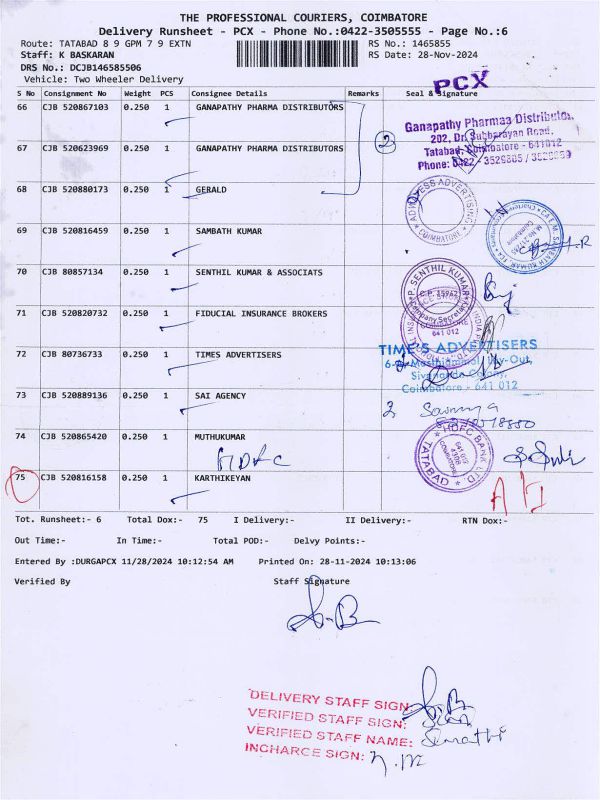 THE PROFESSIONAL COURIERS, COIMBATORE
Delivery Runsheet - PCX - Phone No.:0422-3505555 - Page No.:6
Route: TATABAD 8 9 GPM 7 9 EXTN RS No.: 1465855
Staff: K BASKARAN RS Date: 28-Nov-2024
DRS No.: DCJB146585506
Vehicle: Two Wheeler Delivery
PCX
S No Consignment No Weight PCS Consignee Details Remarks Seal & Signature
66 CJB 520867103 0.250 1 GANAPATHY PHARMA DISTRIBUTORS
Ganapathy Pharmaa Distributors
202, Dr. Subbarayan Road,
Tatabad, Coimbatore - 641012
Phone: 0422 - 3529805 /
2
67 CJB 520623969 0.250 1 GANAPATHY PHARMA DISTRIBUTORS
68 CJB 520880173 0.250 1 GERALD
ADVERTISING
COIMBATORE
69 CJB 520816459 0.250 1 SAMBATH KUMAR
70 CJB 80857134 0.250 1 SENTHIL KUMAR & ASSOCIATS
P. SENTHIL KUMAR
Company Secretary
71 CJB 520820732 0.250 1 FIDUCIAL INSURANCE BROKERS
641 012
72 CJB 80736733 0.250 1 TIMES ADVERTISERS
TIME'S ADVERTISERS
Coimbatore - 641 012
73 CJB 520889136 0.250 1 SAI AGENCY
74 CJB 520865420 0.250 1 MUTHUKUMAR
HDFC
HDFC BANK LTD.
TATABAD
75 CJB 520816158 0.250 1 KARTHIKEYAN
Tot. Runsheet:- 6 Total Dox:- 75 I Delivery:- II Delivery:- RTN Dox:-
Out Time:- In Time:- Total POD:- Delvy Points:-
Entered By :DURGAPCX 11/28/2024 10:12:54 AM Printed On: 28-11-2024 10:13:06
Verified By Staff Signature
DELIVERY STAFF SIGN:
VERIFIED STAFF SIGN:
VERIFIED STAFF NAME:
INCHARGE SIGN: